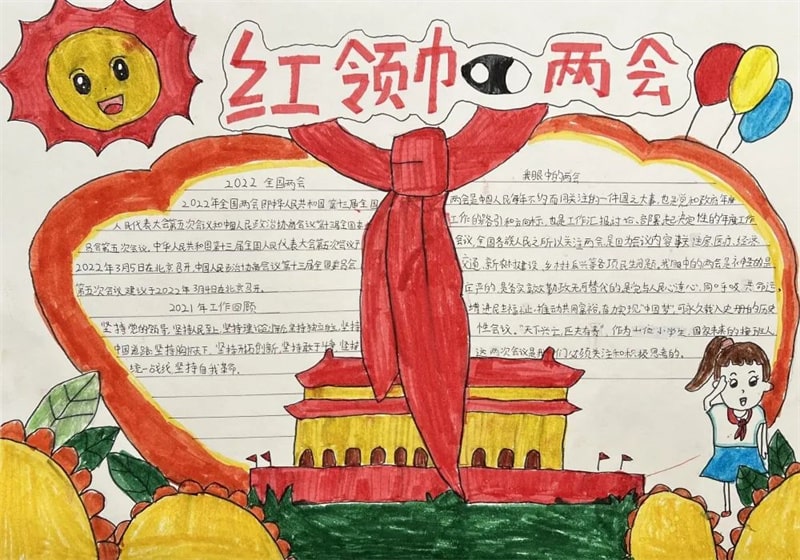 红领巾 两会
2022 全国两会
2022年全国两会即中华人民共和国第十三届全国
人民代表大会第五次会议和中国人民政治协商会议第十三届全国委
员会第五次会议。中华人民共和国第十三届全国人民代表大会第五次会议于
2022年3月5日在北京召开。中国人民政治协商会议第十三届全国委员会
第五次会议建议于2022年3月4日在北京召开。
2021年工作回顾
坚持党的领导,坚持人民至上,坚持理论创新,坚持独立自主,坚持
中国道路,坚持胸怀天下,坚持开拓创新,坚持敢于斗争,坚持
统一战线,坚持自我革命。
我眼中的两会
两会是中国人民每年不约而同关注的一件国之大事,也是党和政府年度
工作的路引和方向标,也是工作汇报讨论、部署起决定性的年度工作
会议。全国各族人民之所以关注两会是因为会议内容事关住房医疗、经济
交通、新农村建设、乡村振兴等各项民生问题。我眼中的两会是神圣的是
庄严的是各级政务勤政无可替代的,是党与人民心连心,同呼吸,共命运
增进民生福祉,推动共同富裕,奋力实现"中国梦",可永久载入史册的历史
性会议。"天下兴亡,匹夫有责",作为一位小学生,国家未来的接班人,
这两次会议是我们必须关注和积极思考的。